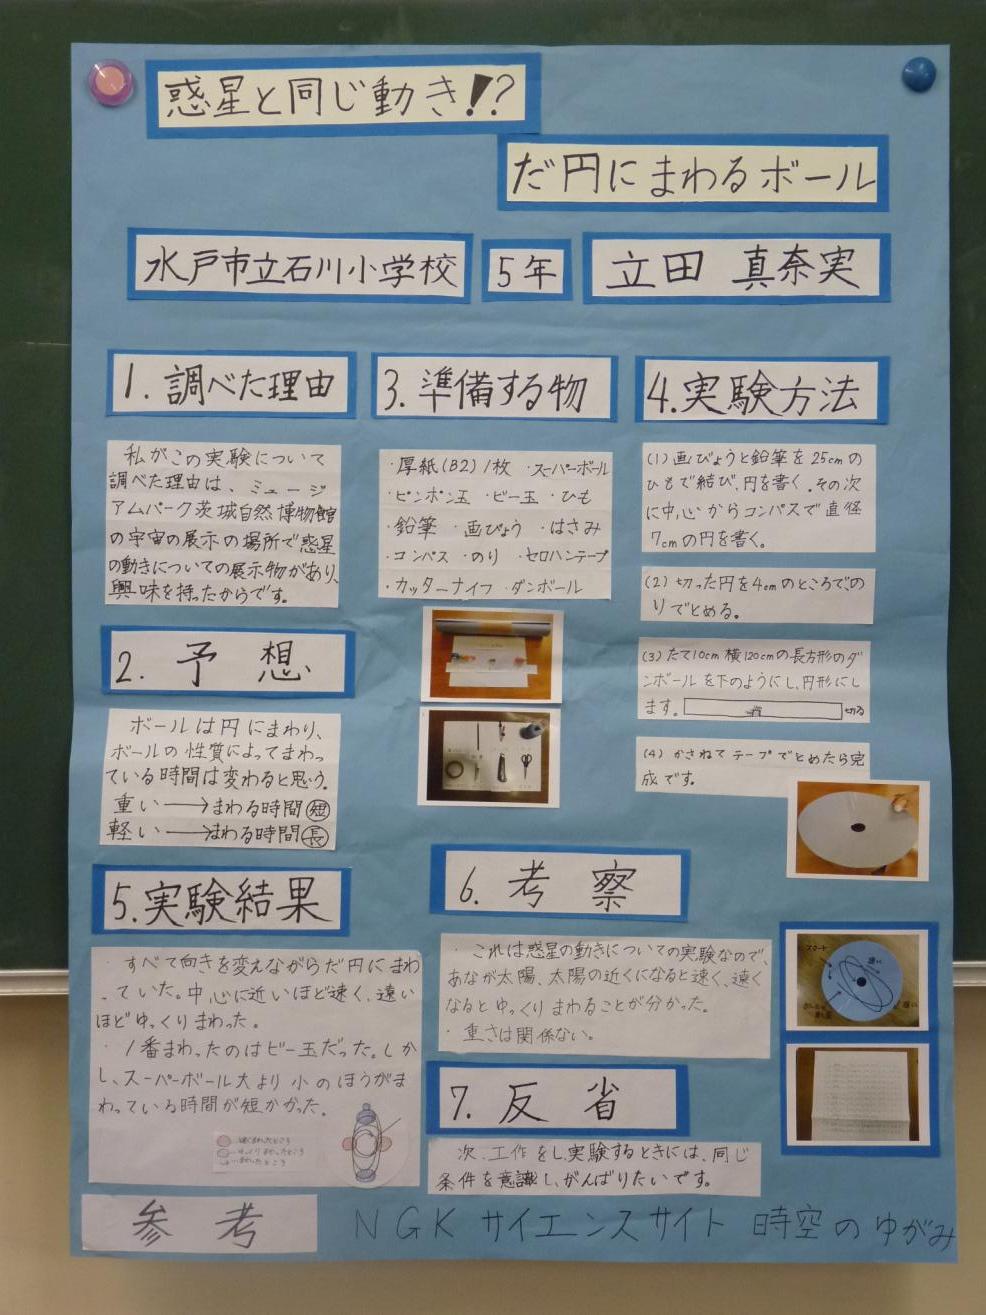 惑星と同じ動き!?
だ円にまわるボール
水戸市立石川小学校 5年 立田 真奈実
1.調べた理由
私がこの実験について
調べた理由は、ミュージ
アムパーク茨城自然博物館
の宇宙の展示の場所で惑星
の動きについての展示物があり、
興味を持ったからです。
2.予想
ボールは円にまわり、
ボールの性質によってまわっ
ている時間は変わると思う。
重い→まわる時間短
軽い→まわる時間長
3.準備する物
・厚紙(B2)1枚 ・スーパーボール
・ピンポン玉 ・ビー玉 ・ひも
・鉛筆 ・画びょう ・はさみ
・コンパス ・のり ・セロハンテープ
・カッターナイフ ・ダンボール
4.実験方法
(1)画びょうと鉛筆を25cmの
ひもで結び、円を書く。その次
に中心からコンパスで直径
7cmの円を書く。
(2)切った円を4cmのところでの
りでとめる。
(3)たて10cm横120cmの長方形のダ
ンボールを下のようにし、円形にし
ます。 切る
(4)かさねてテープでとめたら完
成です。
5.実験結果
すべて向きを変えながらだ円にまわ
っていた。中心に近いほど速く、遠い
ほどゆっくりまわった。
・1番まわったのはビー玉だった。しか
し、スーパーボール大より小のほうがま
わっている時間が短かかった。
6.考察
・これは惑星の動きについての実験なので、
あなが太陽、太陽の近くになると速く、遠く
なるとゆっくりまわることが分かった。
・重さは関係ない。
スタート
速い
7.反省
次、工作をし、実験するときには、同じ
条件を意識し、がんばりたいです。
参考 NGKサイエンスサイト 時空のゆがみ